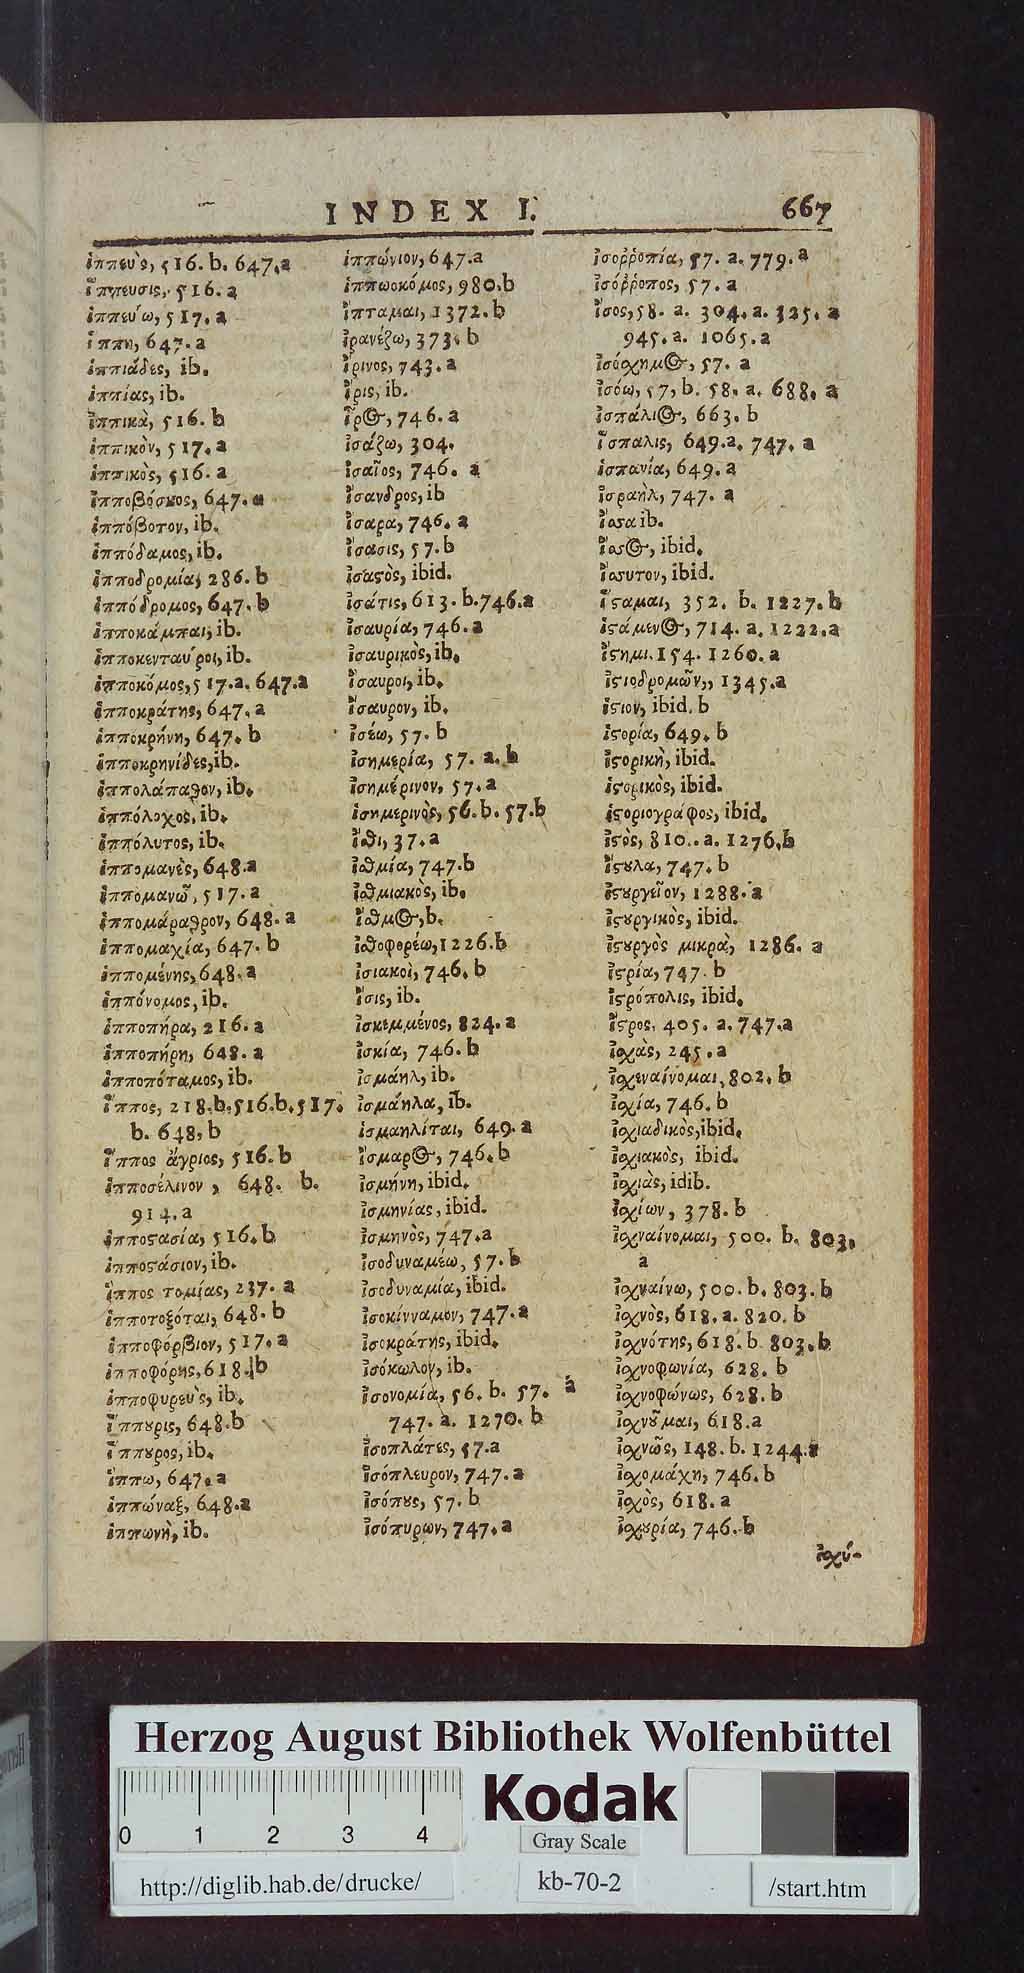 INDEX I. 667
ἱππεὑς, 516. b. 647.a
ἵππευσις, 516. a
ἱππεύω, 517. a
ἵππη, 647. a
ἱππιάδες, ib.
ἱππίας, ib.
ἱππικὰ, 516. b
ἱππικὸν, 517. a
ἱππικὸς, 516. a
ἱπποβόσκος, 647. a
ἱππόβοτον, ib.
ἱππόδαμος, ib.
ἱπποδρομία, 286. b
ἱππόδρομος, 647. b
ἱπποκάμπαι, ib.
ἱπποκενταύροι, ib.
ἱπποκόμος, 517.a. 647.a
ἱπποκράτης, 647. a
ἱπποκρήνη, 647. b
ἱπποκρηνίδες, ib.
ἱππολάπαθον, ib.
ἱππόλοχος, ib.
ἱππόλυτος, ib.
ἱππομανὲς, 648.a
ἱππομανῶ, 517. a
ἱππομάραθρον, 648. a
ἱππομαχία, 647. b
ἱππομένης, 648. a
ἱππόνομος, ib.
ἱπποπήρα, 216. a
ἱπποπήρη, 648. a
ἱπποπόταμος, ib.
ἵππος, 218.b.516.b.517.
b. 648, b
ἵππος ἄγριος, 516. b
ἱπποσέλινον, 648. b.
914. a
ἱπποϛασία, 516. b
ἱπποϛάσιον, ib.
ἵππος τομίας, 237. a
ἱπποτοξόται, 648. b
ἱπποφόρβιον, 517. a
ἱπποφόρης, 618. b
ἱπποφυρεὑς, ib.
ἵππȣρις, 648.b
ἵππȣρος, ib.
ἵππω, 647. a
ἱππώναξ, 648.a
ἱππωνὴ, ib.
ἱππώνιον, 647.a
ἱππωοκόμος, 980. b
ἵπταμαι, 1372. b
ἰρανέζω, 373. b
ἴρινος, 743. a
ἶρις, ib.
ἶρος, 746. a
ἰσάζω, 304.
ἰσαῖος, 746. a
ἴσανδρος, ib
ἴσαρα, 746. a
ἴσασις, 57. b
ἰσαϛὸς, ibid.
ἰσάτις, 613. b.746.a
ἰσαυρία, 746. a
ἰσαυρικὸς, ib.
ἴσαυροι, ib.
ἴσαυρον, ib.
ἰσέω, 57. b
ἰσημερία, 57. a. b
ἰσημέρινον, 57. a
ἰσημερινὸς, 56. b. 57.b
ἴσθι, 37. a
ἰσθμία, 747.b
ἰσθμιακὸς, ib.
ἴσθμος, b.
ἰσθοφορέω, 1226.b
ἰσιακοὶ, 746. b
ἶσις, ib.
ἰσκεμμένος, 824. a
ἰσκία, 746. b
ἰσμάηλ, ib.
ἰσμάηλα, ib.
ἰσμαηλίται, 649. a
ἴσμαρος, 746. b
ἰσμήνη, ibid.
ἰσμηνίας, ibid.
ἰσμηνὸς, 747.a
ἰσοδυναμέω, 57. b
ἰσοδυναμία, ibid.
ἰσοκίνναμον, 747. a
ἰσοκράτης, ibid.
ἰσόκωλον, ib.
ἰσονομία, 56. b. 57. a
747. a. 1270. b
ἰσοπλάτες, 57.a
ἰσόπλευρον, 747. a
ἰσόπȣς, 57. b
ἰσόπυρων, 747. a
ἰσορῥοπία, 57. a. 779. a
ἰσόῤῥοπος, 57. a
ἴσος, 58. a. 304. a. 325. a
945. a. 1065. a
ἰσόχημος, 57. a
ἰσόω, 57, b. 58. a. 688. a
ἰσπάλιος, 663. b
ἵσπαλις, 649.a. 747. a
ἱσπανία, 649. a
ἰσραὴλ, 747. a
ἴσϛα ib.
ἴσϛος, ibid.
ἴσϛυτον, ibid.
ἵϛαμαι, 352. b. 1227. b
ἱϛάμενος, 714. a. 1222.a
ἵϛημι. 154. 1260. a
ἱϛιοδρομῶν,, 1345.a
ἱϛιον, ibid. b
ἱϛορία, 649. b
ἱϛορικὴ, ibid.
ἱϛορικὸς, ibid.
ἱϛοριογράφος, ibid.
ἱϛὸς, 810.. a. 1276.b
ἵϛȣλα, 747. b
ἱϛȣργεῖον, 1288. a
ἱϛȣργικὸς, ibid.
ἱϛȣργὸς μικρὰ, 1286. a
ἰϛρία, 747. b
ἰϛρόπολις, ibid.
ἴϛρος, 405. a. 747.a
ἰσχὰς, 245. a
ἰσχεναίνομαι, 802. b
ἰσχία, 746. b
ἰσχιαδικὸς, ibid.
ἰσχιακὸς, ibid.
ἰσχιὰς, idib.
ἰσχίων, 378. b
ἰσχναίνομαι, 500. b. 803.
a
ἰσχναίνω, 500. b. 803. b
ἰσχνὸς, 618. a. 820. b
ἰσχνότης, 618. b 803. b
ἰσχνοφωνία, 628. b
ἰσχνοφώνως, 628. b
ἰσχνοῦμαι, 618.a
ἰσχνῶς, 148. b. 1244.a
ἰσχομάχη, 746. b
ἰσχὸς, 618. a
ἰσχȣρία, 746. b
ἰσχύ-
Herzog August Bibliothek Wolfenbüttel
0 1 2 3 4
Kodak
Gray Scale
http://diglib.hab.de/drucke/
kb-70-2
/start.htm